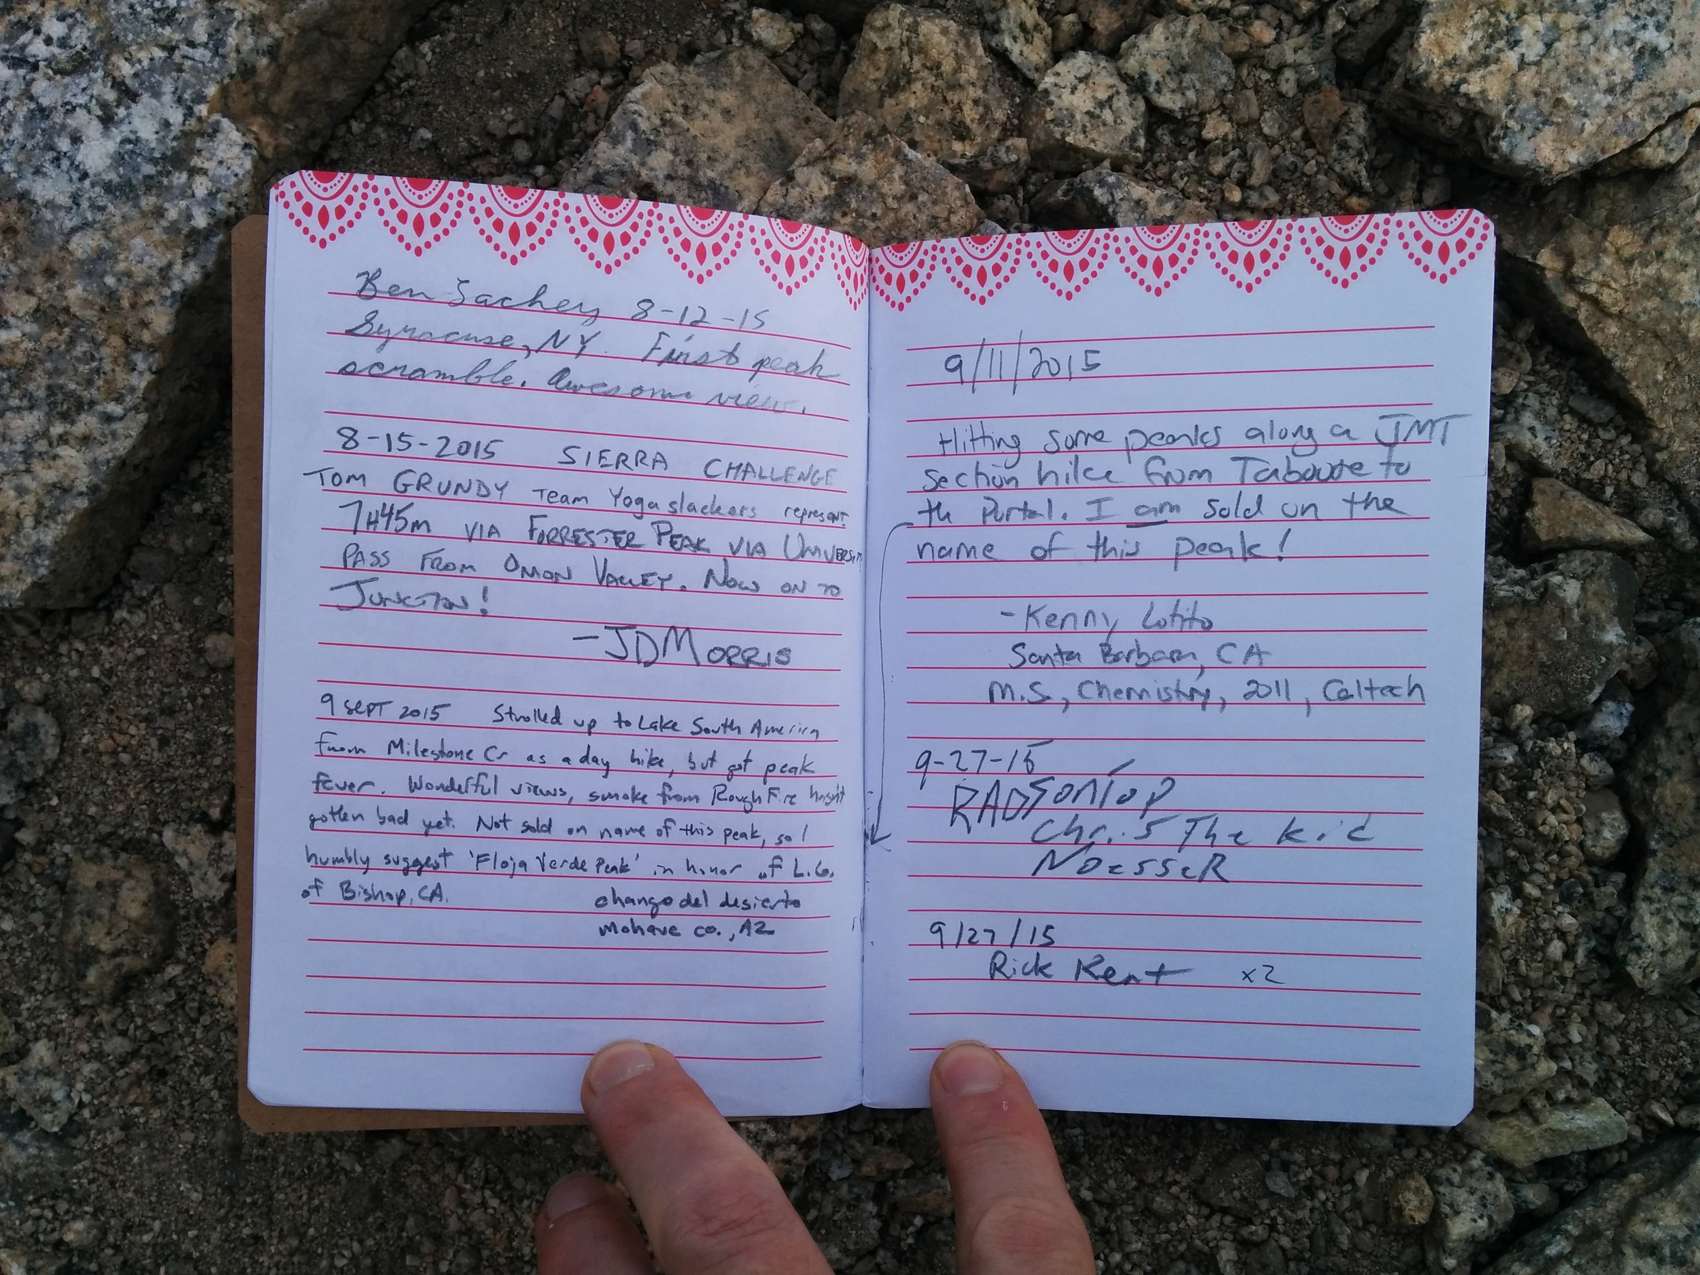 Ben Sachey 8-12-15
Syracuse, NY. First peak
scramble. Awesome view.
8-15-2015 SIERRA CHALLENGE
TOM GRUNDY TEAM Yogaslackers represent
7H45m VIA FORRESTER PEAK VIA UNIVERSITY
PASS FROM ONION VALLEY. NOW ON TO
JUNCTION!
-JDMORRIS
9 SEPT 2015 Strolled up to Lake South America
from Milestone Cr as a day hike, but got peak
fever. Wonderful views, smoke from Rough Fire
gotten bad yet. Not sold on name of this peak, so I
humbly suggest 'Floja Verde Peak' in honor of L.G.
of Bishop, CA.
chango del desierto
Mohave co., AZ
9/11/2015
Hitting some peaks along a JMT
section hike from Taboose to
the Portal. I am sold on the
name of this peak!
-Kenny Lotito
Santa Barbara, CA
M.S., Chemistry, 2011, Caltech
9-27-15
RADSONTOP
Chris The kid
NOesseR
9/27/15
Rick Kent x2